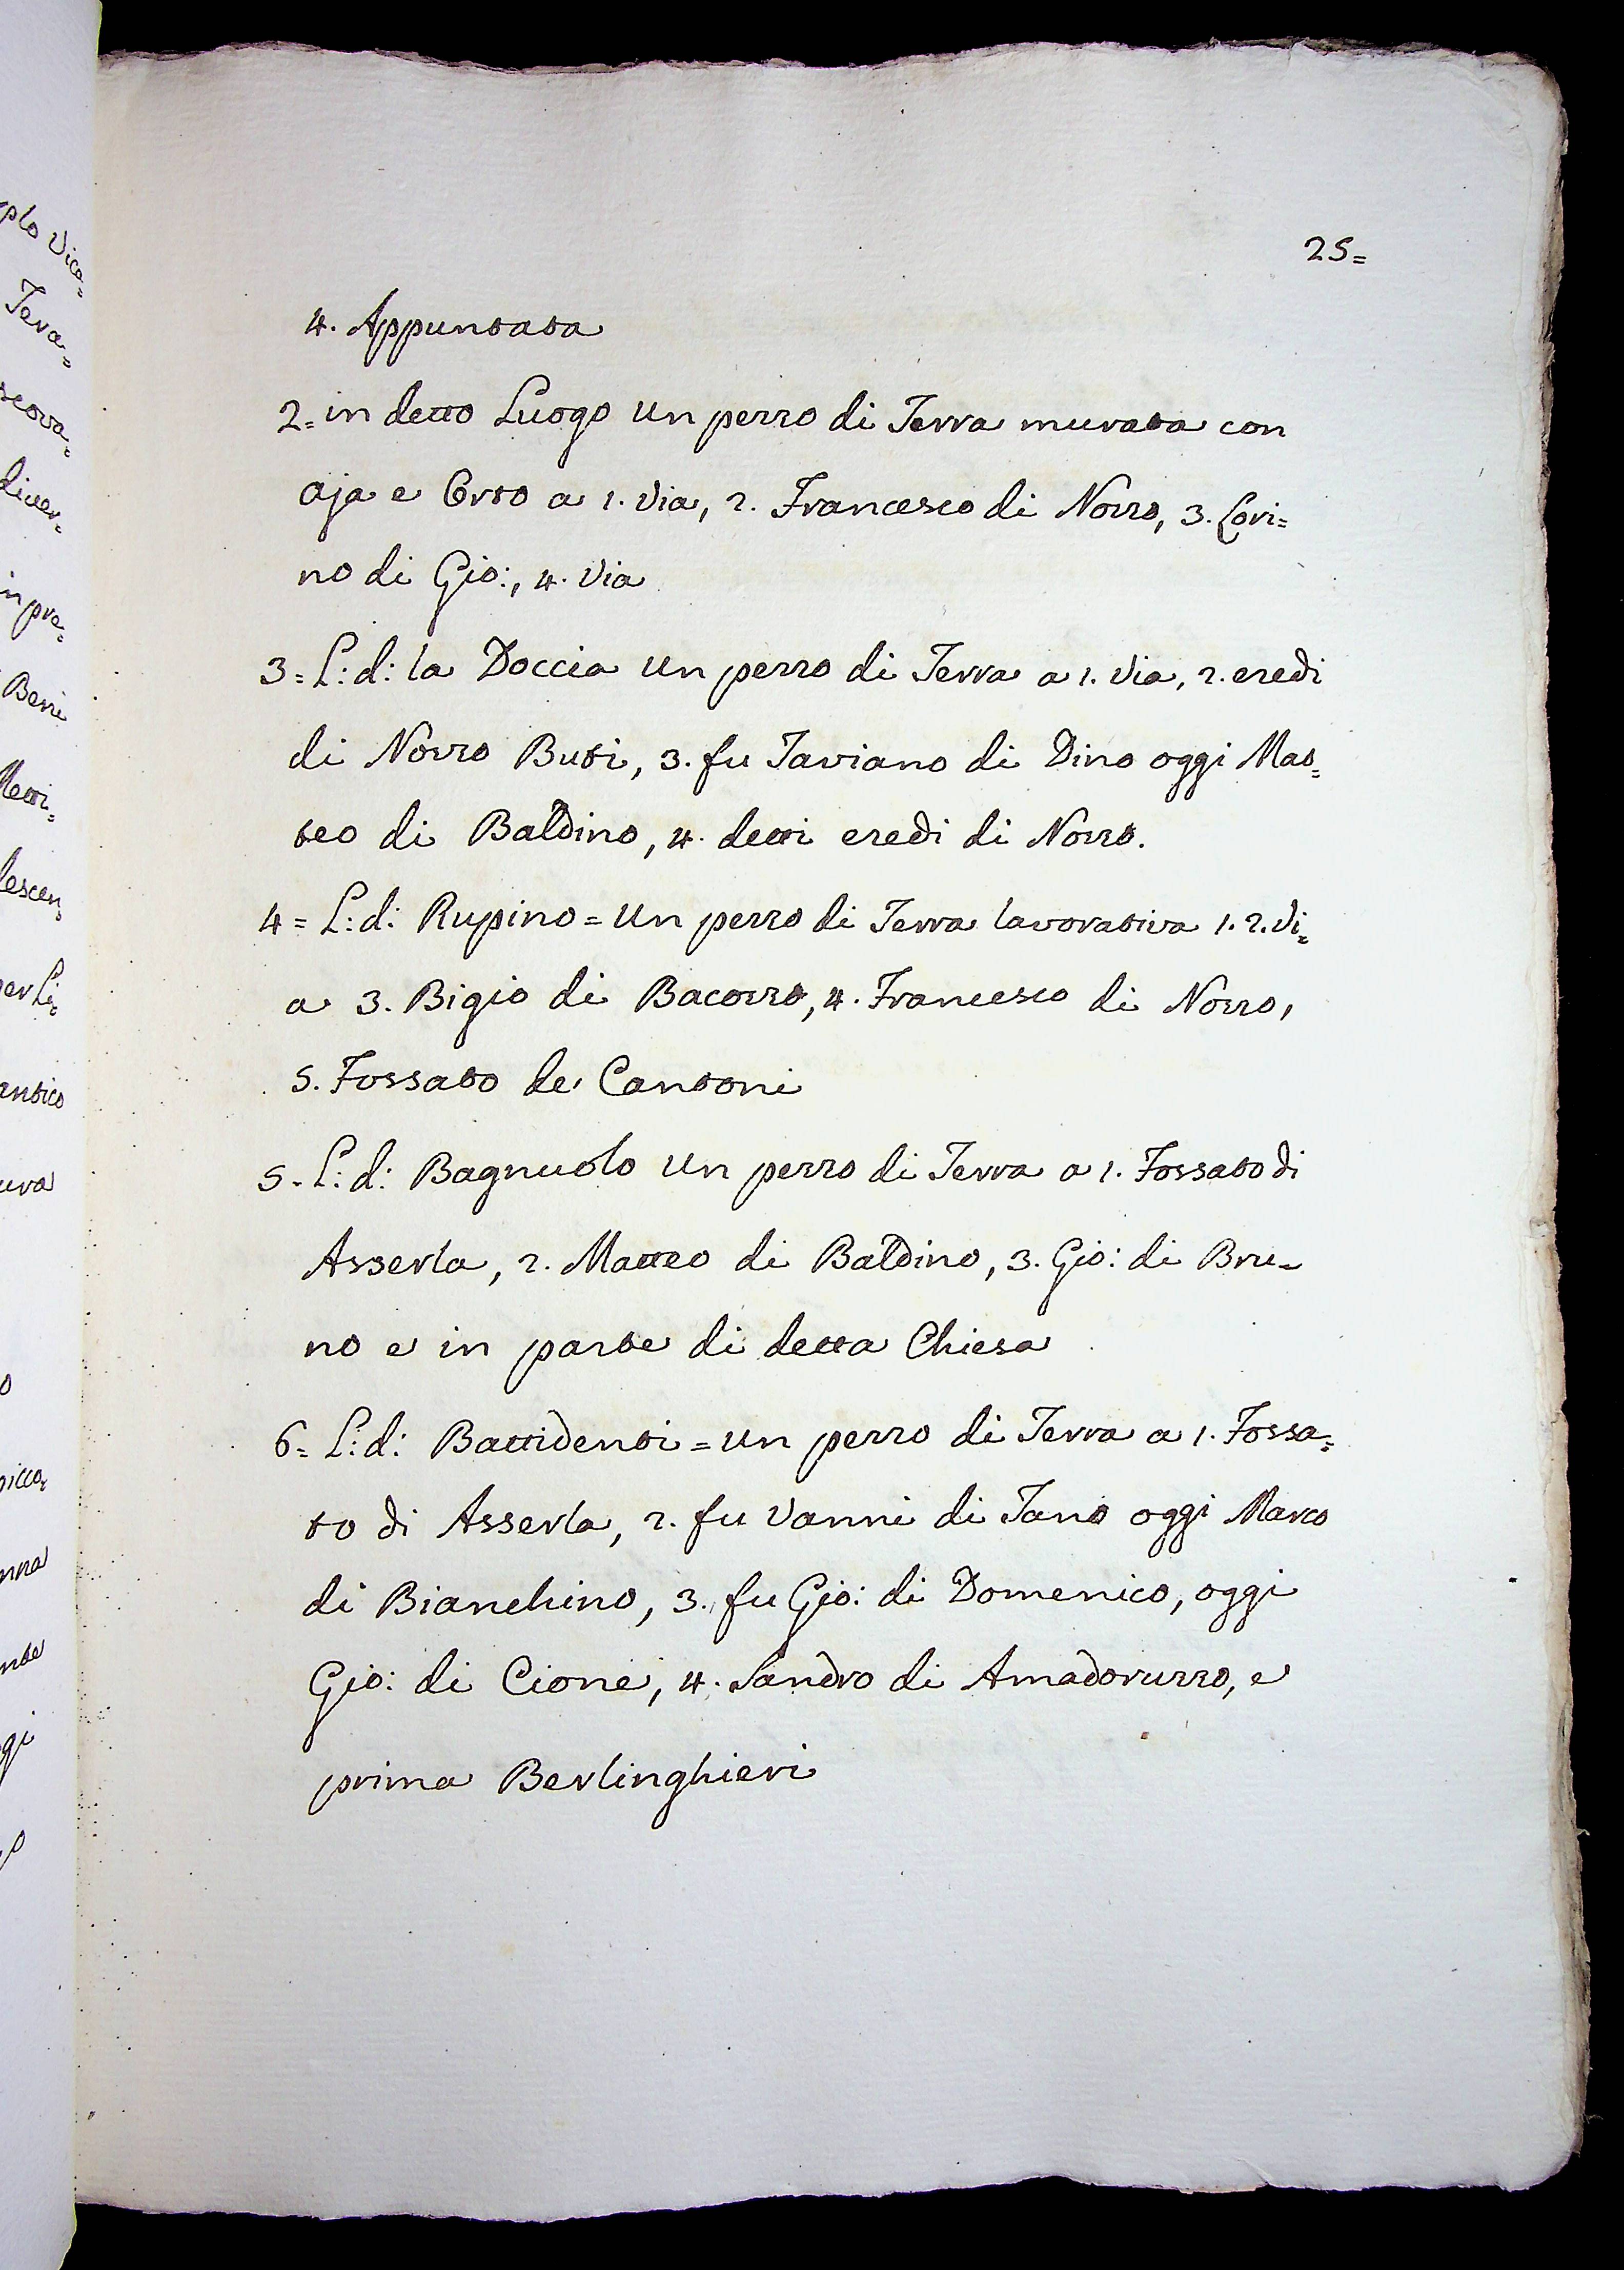 25=
4. Appuntata
2= in detto Luogo un pezzo di Terra murata con
aja e Orto a 1. Via, 2. Francesco di Nozzo, 3. Cori=
no di Gio:, 4. Via
3= L: d: la Doccia un pezzo di Terra a 1. Via, 2. eredi
di Nozzo Buti, 3. fu Taviano di Dino oggi Mat=
teo di Baldino, 4. detti eredi di Nozzo.
4= L: d: Rupino = un pezzo di Terra lavorativa 1. 2. Vi=
a 3. Bigio di Bacozzo, 4. Francesco di Nozzo,
5. Fossato de Cantoni
5. L: d: Bagnuolo un pezzo di Terra a 1. Fossato di
Asserla, 2. Matteo di Baldino, 3. Gio: di Bru=
no e in parte di detta Chiesa
6= L: d: Battidenti = un pezzo di Terra a 1. Fossa=
to di Asserla, 2. fu Vanni di Tano oggi Marco
di Bianchino, 3. fu Gio: di Domenico, oggi
Gio: di Cione, 4. Sandro di Amadoruzzo, e
prima Berlinghieri